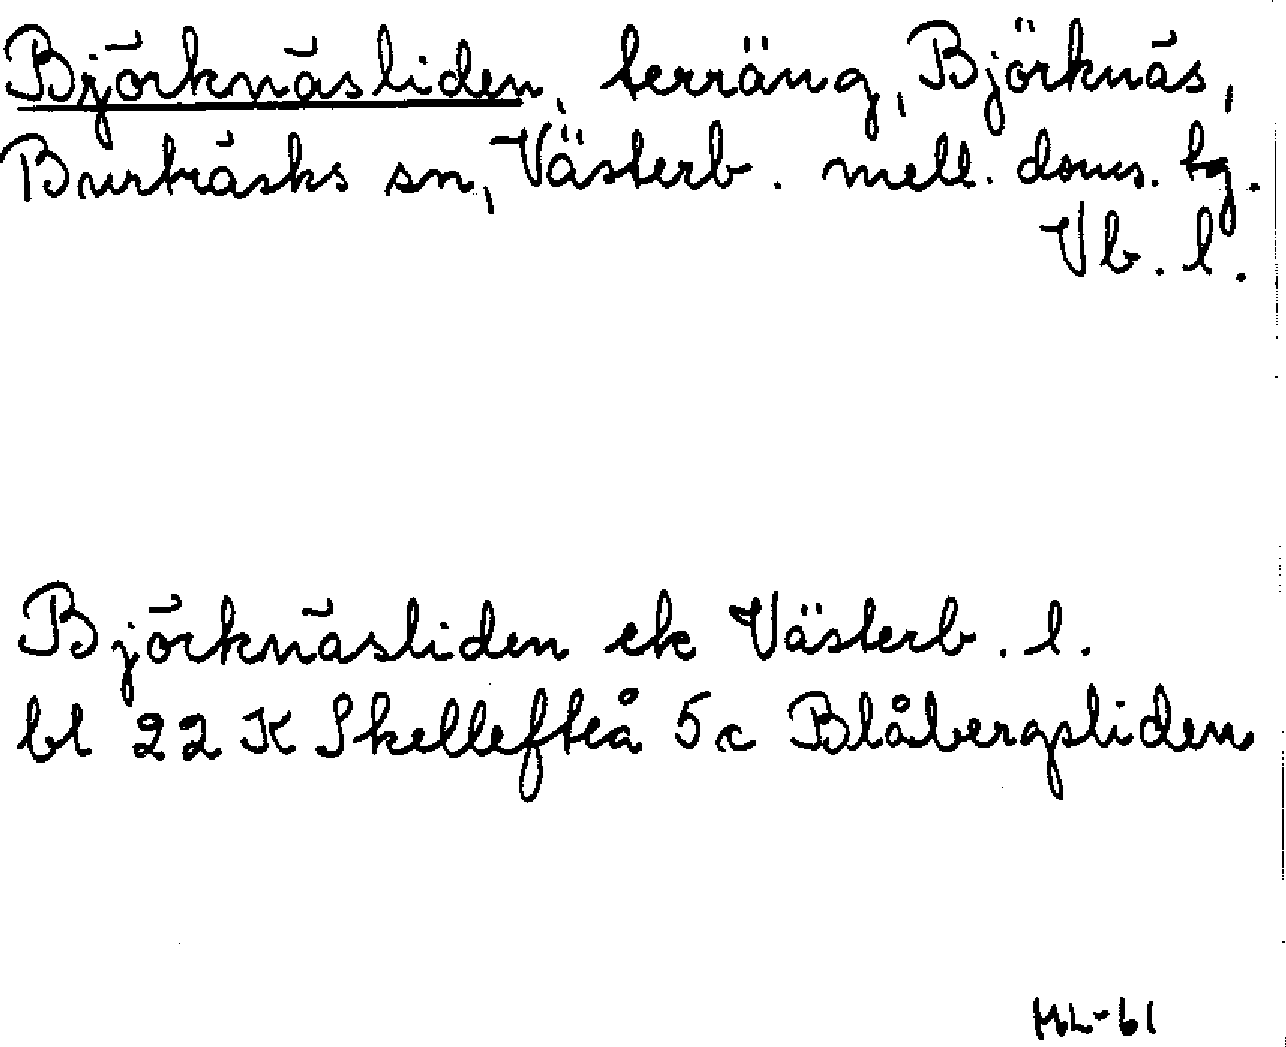 Björknäsliden, terräng, Björknäs,
Burträsks sn, Västerb. mell. doms. tg.
Vb. l.
Björknäsliden ek Västerb. l.
bl 22 K Skellefteå 5c Blåbergsliden
ML-61